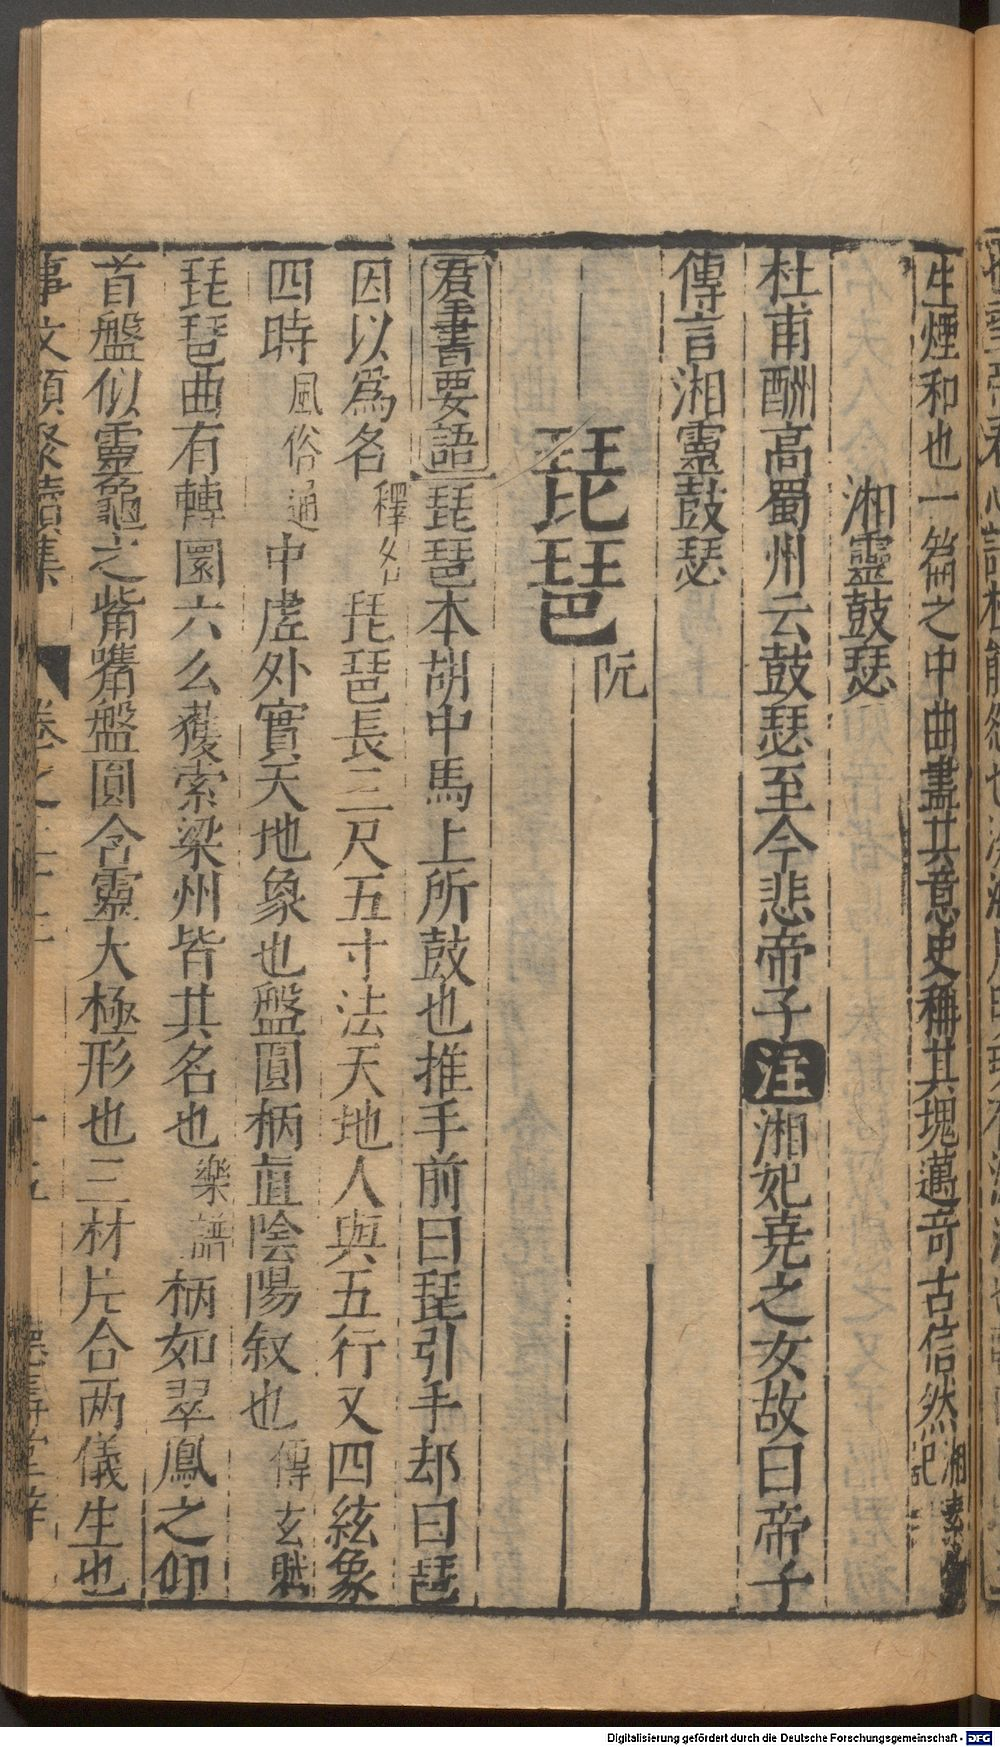 生煙和也一篇之中曲盡其意史稱其塊邁奇古信然湘素雜記
湘靈鼓瑟
杜甫酬高蜀州云鼓瑟至今悲帝子注湘妃堯之女故曰帝子
傳言湘靈鼓瑟
琵琶阮
羣書要語琵琶本胡中馬上所鼓也推手前曰琵引手却曰琶
因以為名釋名琵琶長三尺五寸法天地人與五行又四絃象
四時風俗通中虗外實天地象也盤圓柄直陰陽叙也傳玄賦
琵琶曲有轉圜六么獲索梁州皆其名也樂譜柄如翠鳳之仰
首盤似靈龜之觜嘴盤圓含靈大極形也三材片合两儀生也
事文類聚續集 卷之二十三
Digitalisierung gefördert durch die Deutsche Forschungsgemeinschaft - DFG